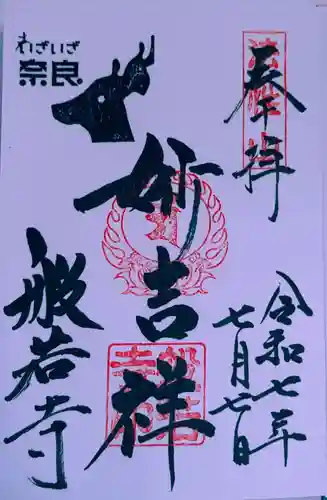 わざいざ
奈良
奉拝
妙吉祥
令和七年
七月七日
般若寺